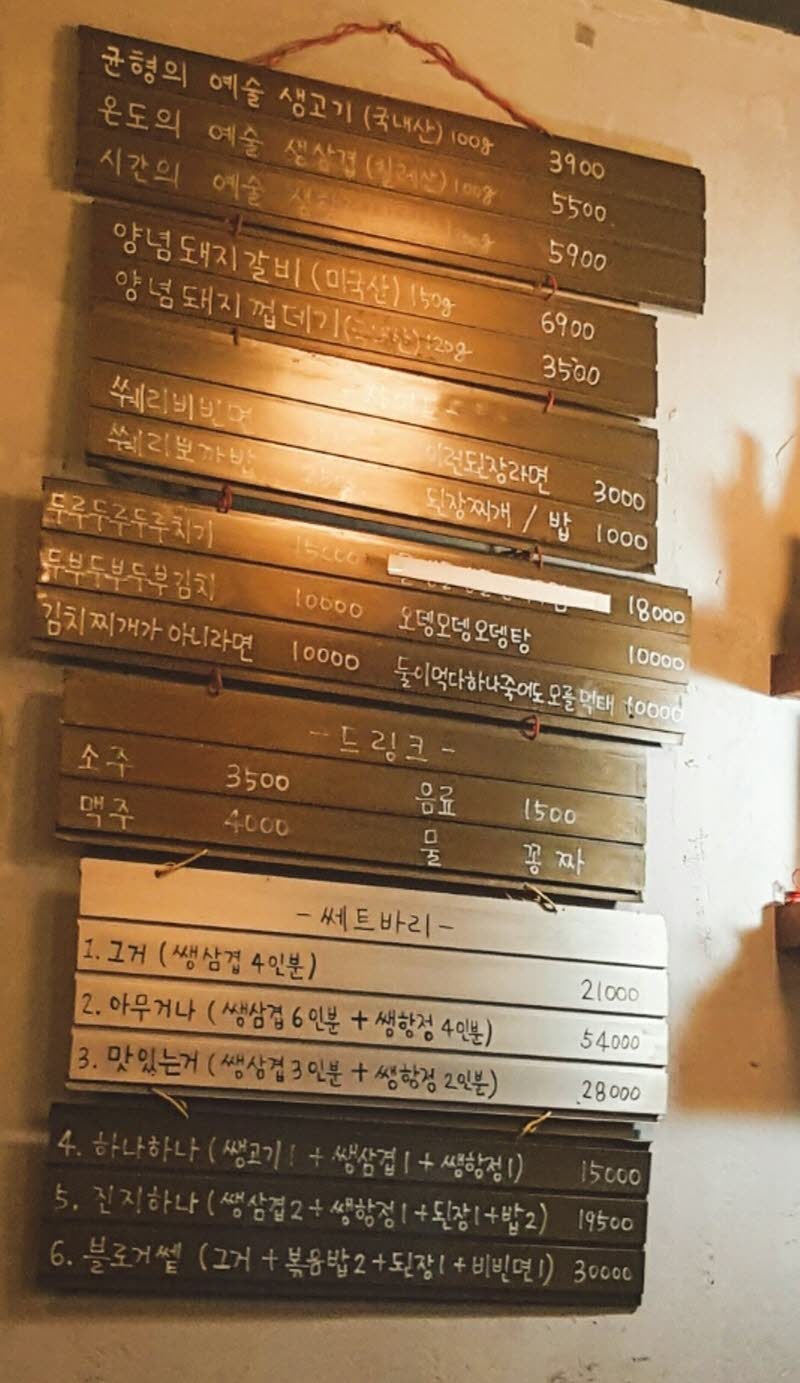 균형의 예술 생고기 (국내산) 100g 3900
온도의 예술 생삼겹 (칠레산) 100g 5500
시간의 예술 5900
양념돼지갈비 (미국산) 150g 6900
양념돼지껍데기 120g 3500
쑤레리비빔면 이런된장라면 3000
된장찌개 / 밥 1000
두루두루두루치기 15000 18000
두부두부두부김치 10000 오뎅모뎅오뎅탕 10000
김치찌개가 아니라면 10000 둘이먹다하나죽어도모를먹태 10000
-드링크-
소주 3500 음료 1500
맥주 4000 물 꽁짜
-쎄트바리-
1. 그거 (쌩삼겹 4인분) 21000
2. 아무거나 (쌩삼겹 6인분 + 쌩항정 4인분) 54000
3. 맛있는거 (쌩삼겹 3인분 + 쌩항정 2인분) 28000
4. 하나하나 (쌩고기1 + 쌩삼겹1 + 쌩항정1) 15000
5. 진지하나 (쌩삼겹2+쌩항정1+된장1+밥2) 19500
6. 블로거쎝 (그거 + 볶음밥2+된장1+비빔면1) 30000